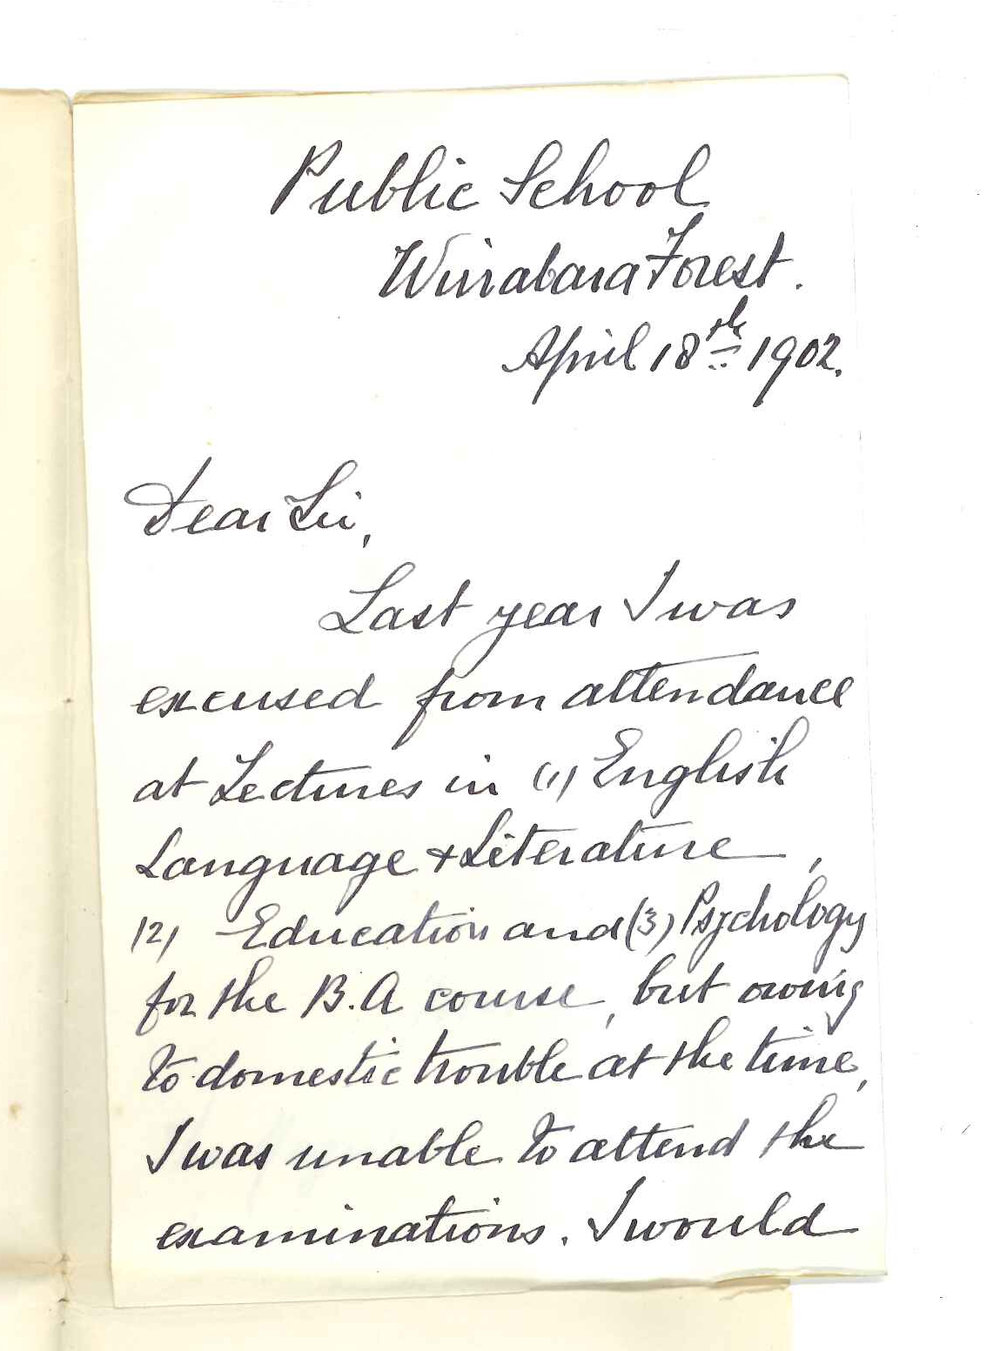 Public School
Wirrabara Forest.
April 18th 1902.
Dear Sir,
Last year I was
excused from attendance
at Lectures in (1) English
Language & Literature,
(2) Education and (3) Psychology
for the B.A course, but owing
to domestic trouble at the time,
I was unable to attend the
examinations. I would